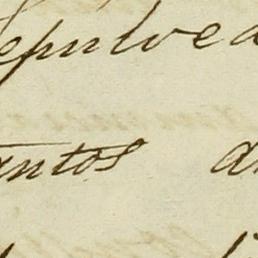 epulved
antos a